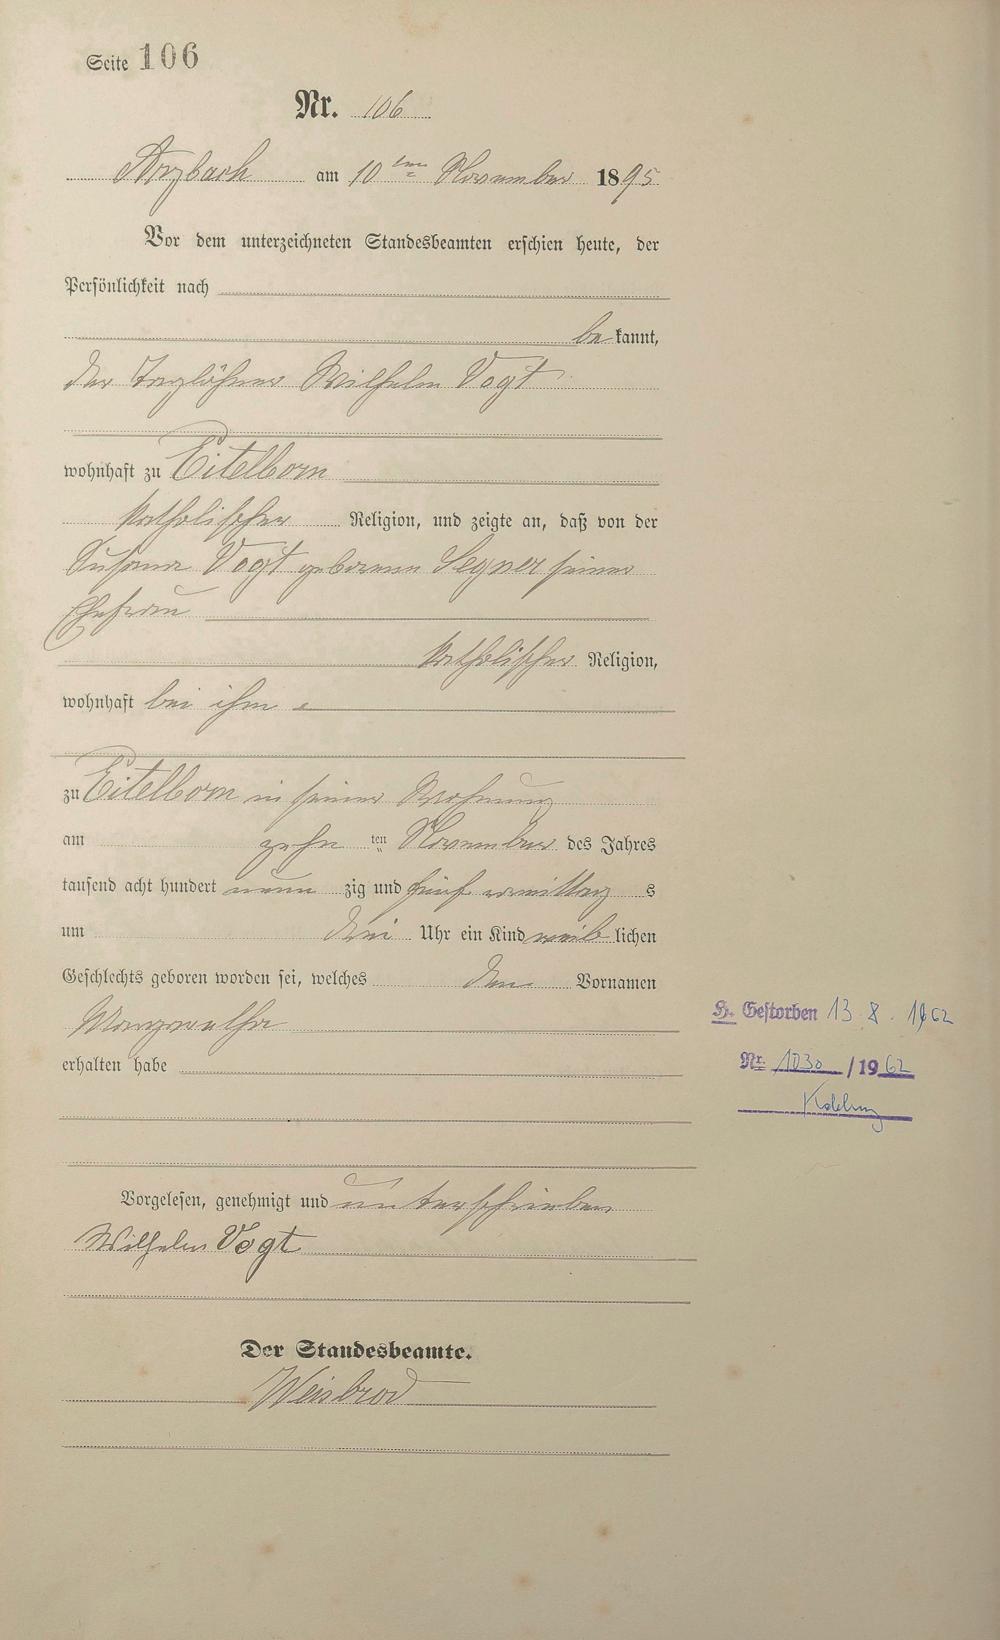 Seite 106
Nr. 106
Arzbach am 10ten November 1895
Vor dem unterzeichneten Standesbeamten erschien heute, der
Persönlichkeit nach
bekannt,
der Taglöhner Wilhelm Vogt
wohnhaft zu Eitelborn
katholischer Religion, und zeigte an, daß von der
Susanna Vogt geborenen Segner seiner
Ehefrau
katholischer Religion,
wohnhaft bei ihm
zu Eitelborn in seiner Wohnung
am zehn ten November des Jahres
tausend acht hundert neun zig und fünf vormittag s
um drei Uhr ein Kind weiblichen
Geschlechts geboren worden sei, welches den Vornamen
Margaretha
erhalten habe
H. Gestorben 13.8.1962
Nr. 1030/1962
Koblenz
Vorgelesen, genehmigt und unterschrieben
Wilhelm Vogt
Der Standesbeamte.
Weisbrod